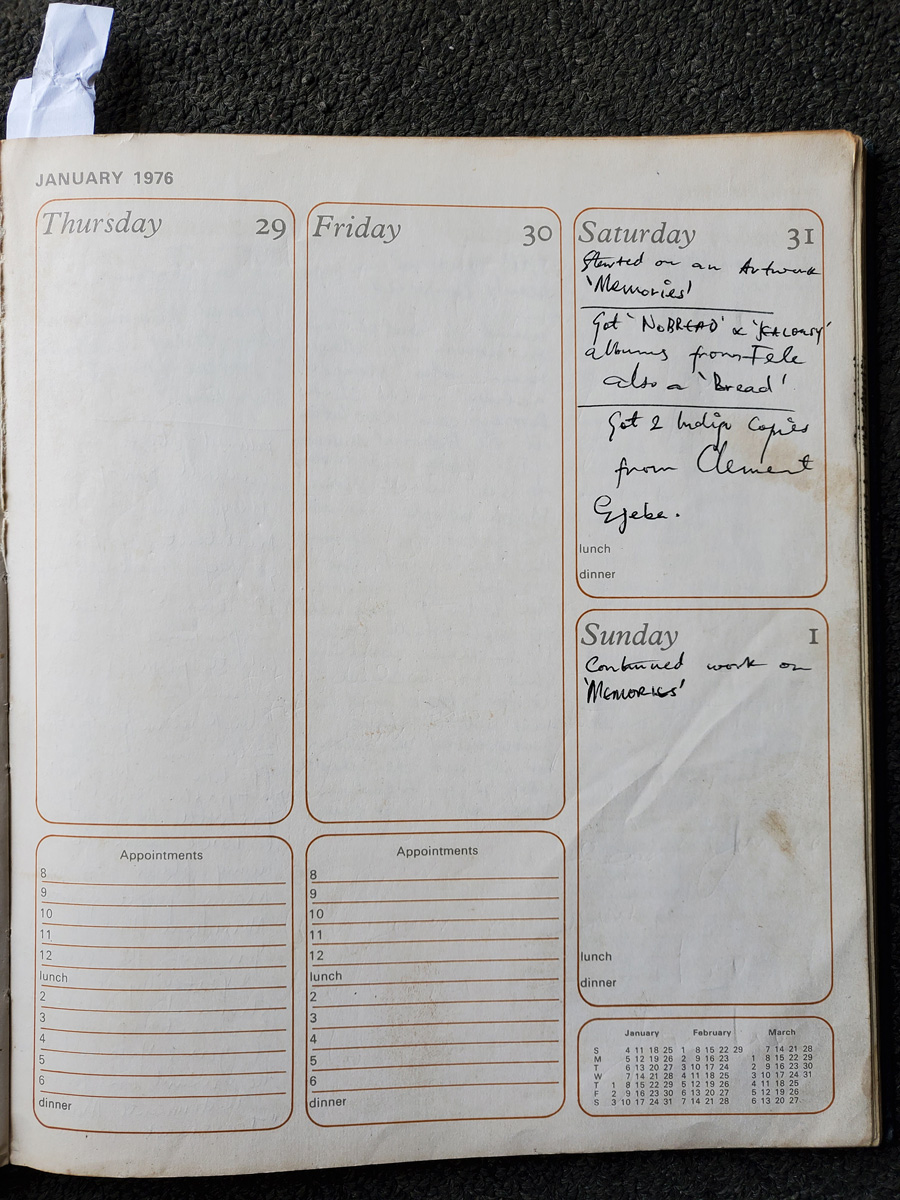 JANUARY 1976
Thursday 29
Appointments
8
9
10
11
12
lunch
2
3
4
5
6
dinner
Friday 30
Appointments
8
9
10
11
12
lunch
2
3
4
5
6
dinner
Saturday 31
Started on an Artwork
'Memories'
Got 'NoBREAD' & 'JEALOUSY'
albums from Fela
also a 'Bread'
Got 2 copies
from Clement
lunch
dinner
Sunday 1
Continued work on
'MEMORIES'
lunch
dinner
January February March
S 4 11 18 25 1 8 15 22 29 7 14 21 28
M 5 12 19 26 2 9 16 23 1 8 15 22 29
T 6 13 20 27 3 10 17 24 2 9 16 23 30
W 7 14 21 28 4 11 18 25 3 10 17 24 31
T 1 8 15 22 29 5 12 19 26 4 11 18 25
F 2 9 16 23 30 6 13 20 27 5 12 19 26
S 3 10 17 24 31 7 14 21 28 6 13 20 27